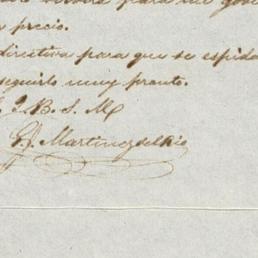 para
precio.
directiva para que se espida
seguirlo muy pronto.
J. B. S. M
G. J. Martinez del Rio